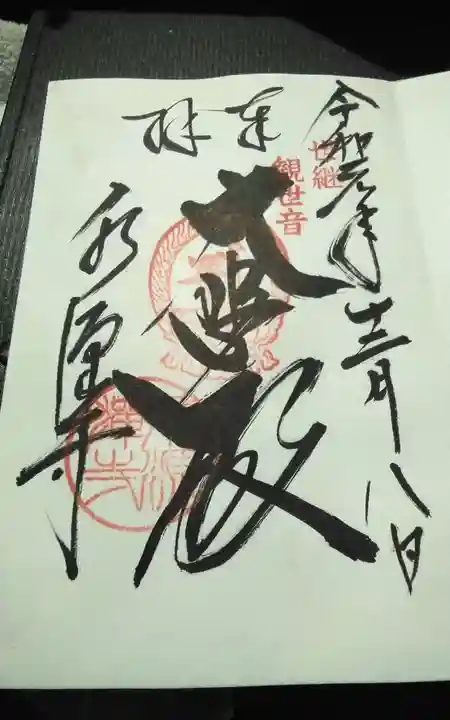 令和元年十二月八日
世継
観世音
奉拝
大悲殿
永源寺
永源
禅寺